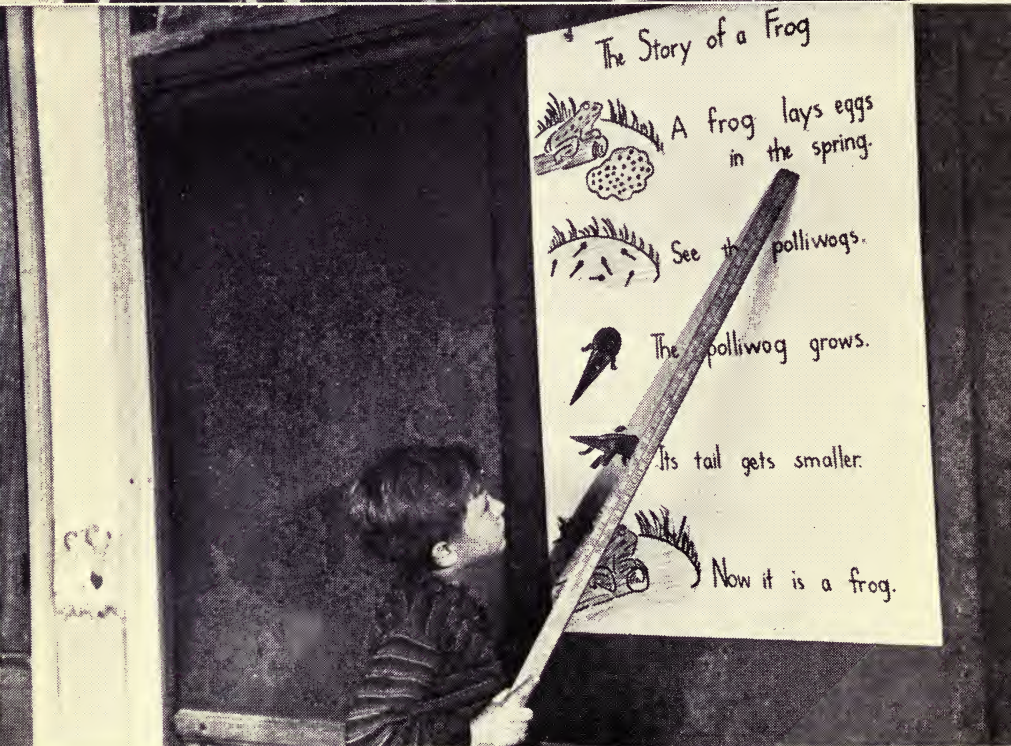 The Story of a Frog
A frog lays eggs
in the spring.
See the polliwogs.
The polliwog grows.
Its tail gets smaller.
Now it is a frog.